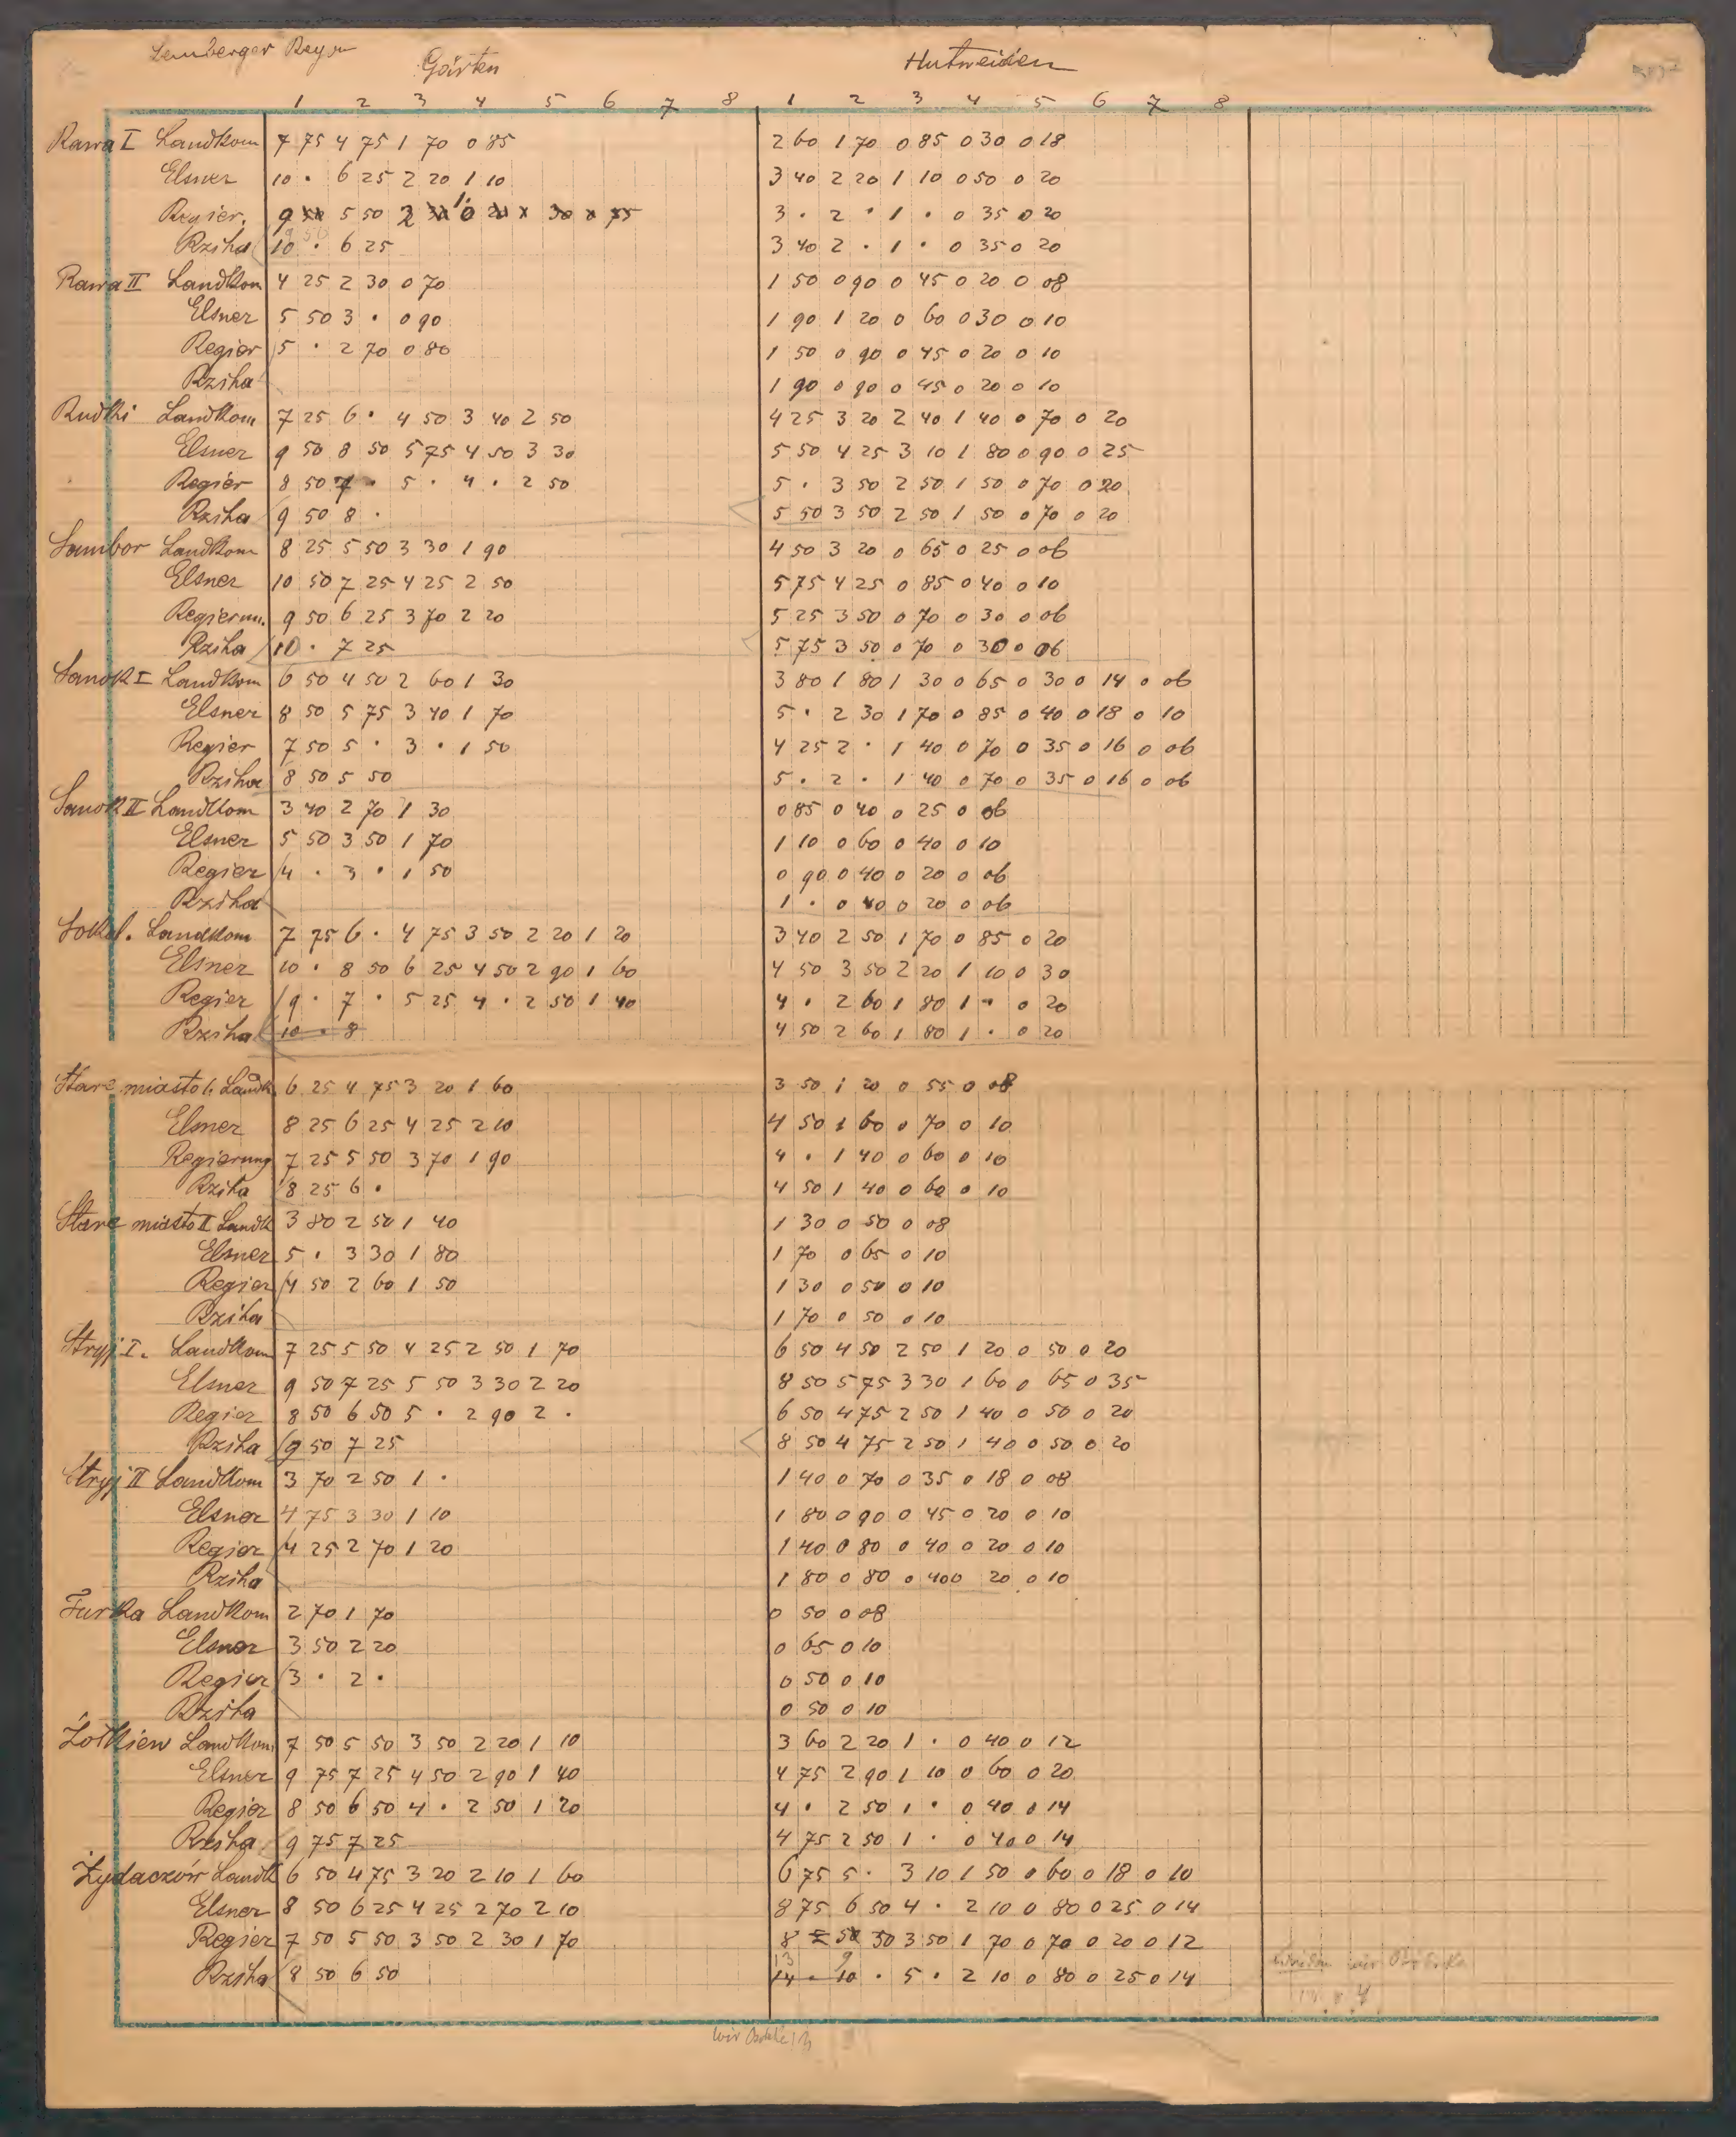 Lemberger Rayon
Gärten Hutweiden
1 2 3 4 5 6 7 8 1 2 3 4 5 6 7 8
Rawa I Landkom 7 75 4 75 1 70 0 85 2 60 1 70 0 85 0 30 0 18
Elsner 10 · 6 25 2 20 1 10 3 40 2 20 1 10 0 50 0 20
Regier. 9 5 50 2 3 · 2 · 1 · 0 35 0 20
Rziha 10 · 6 25 3 40 2 · 1 · 0 35 0 20
Rawa II Landkom 4 25 2 30 0 70 1 50 0 90 0 45 0 20 0 08
Elsner 5 50 3 · 0 90 1 90 1 20 0 60 0 30 0 10
Regier 5 · 2 70 0 80 1 50 0 90 0 45 0 20 0 10
Rziha 1 90 0 90 0 45 0 20 0 10
Rudki Landkom 7 25 6 · 4 50 3 40 2 50 4 25 3 20 2 40 1 40 0 70 0 20
Elsner 9 50 8 50 5 75 4 50 3 30 5 50 4 25 3 10 1 80 0 90 0 25
Regier 8 50 7 · 5 · 4 · 2 50 5 · 3 50 2 50 1 50 0 70 0 20
Rziha 9 50 8 · 5 50 3 50 2 50 1 50 0 70 0 20
Sambor Landkom 8 25 5 50 3 30 1 90 4 50 3 20 0 65 0 25 0 06
Elsner 10 50 7 25 4 25 2 50 5 75 4 25 0 85 0 40 0 10
Regierun. 9 50 6 25 3 70 2 20 5 25 3 50 0 70 0 30 0 06
Rziha 10 · 7 25 5 75 3 50 0 70 0 30 0 06
Sanok I Landkom 6 50 4 50 2 60 1 30 3 80 1 80 1 30 0 65 0 30 0 14 0 06
Elsner 8 50 5 75 3 40 1 70 5 · 2 30 1 70 0 85 0 40 0 18 0 10
Regier 7 50 5 · 3 · 1 50 4 25 2 · 1 40 0 70 0 35 0 16 0 06
Rziha 8 50 5 50 5 · 2 · 1 40 0 70 0 35 0 16 0 06
Sanok II Landkom 3 40 2 70 1 30 0 85 0 40 0 25 0 06
Elsner 5 50 3 50 1 70 1 10 0 60 0 40 0 10
Regier 4 · 3 · 1 50 0 90 0 40 0 20 0 06
Rziha 1 · 0 40 0 20 0 06
Sokal. Landkom 7 75 6 · 4 75 3 50 2 20 1 20 3 40 2 50 1 70 0 85 0 20
Elsner 10 · 8 50 6 25 4 50 2 90 1 60 4 50 3 50 2 20 1 10 0 30
Regier 9 · 7 · 5 25 4 · 2 50 1 40 4 · 2 60 1 80 1 · 0 20
Rziha 10 · 8 4 50 2 60 1 80 1 · 0 20
Stare miasto I. Landk. 6 25 4 75 3 20 1 60 3 50 1 20 0 55 0 08
Elsner 8 25 6 25 4 25 2 10 4 50 1 60 0 70 0 10
Regierung 7 25 5 50 3 70 1 90 4 · 1 40 0 60 0 10
Rziha 8 25 6 · 4 50 1 40 0 60 0 10
Stare miasto II Landk 3 80 2 50 1 40 1 30 0 50 0 08
Elsner 5 · 3 30 1 80 1 70 0 65 0 10
Regier 4 50 2 60 1 50 1 30 0 50 0 10
Rziha 1 70 0 50 0 10
Stryj I. Landkom 7 25 5 50 4 25 2 50 1 70 6 50 4 50 2 50 1 20 0 50 0 20
Elsner 9 50 7 25 5 50 3 30 2 20 8 50 5 75 3 30 1 60 0 65 0 35
Regier 8 50 6 50 5 · 2 90 2 · 6 50 4 75 2 50 1 40 0 50 0 20
Rziha 9 50 7 25 8 50 4 75 2 50 1 40 0 50 0 20
Stryj II Landkom 3 70 2 50 1 · 1 40 0 70 0 35 0 18 0 08
Elsner 4 75 3 30 1 10 1 80 0 90 0 45 0 20 0 10
Regier 4 25 2 70 1 20 1 40 0 80 0 40 0 20 0 10
Rziha 1 80 0 80 0 40 0 20 0 10
Turka Landkom 2 70 1 70 0 50 0 08
Elsner 3 50 2 20 0 65 0 10
Regier 3 · 2 · 0 50 0 10
Rziha 0 50 0 10
Żółkiew Landkom 7 50 5 50 3 50 2 20 1 10 3 60 2 20 1 · 0 40 0 12
Elsner 9 75 7 25 4 50 2 90 1 40 4 75 2 90 1 10 0 60 0 20
Regier 8 50 6 50 4 · 2 50 1 20 4 · 2 50 1 · 0 40 0 14
Rziha 9 75 7 25 4 75 2 50 1 · 0 40 0 14
Żydaczów Landk 6 50 4 75 3 20 2 10 1 60 6 75 5 · 3 10 1 50 0 60 0 18 0 10
Elsner 8 50 6 25 4 25 2 70 2 10 8 75 6 50 4 · 2 10 0 80 0 25 0 14
Regier 7 50 5 50 3 50 2 30 1 70 8 5 50 50 3 50 1 70 0 70 0 20 0 12
13 9
Rziha 8 50 6 50 14 · 10 · 5 · 2 10 0 80 0 25 0 14